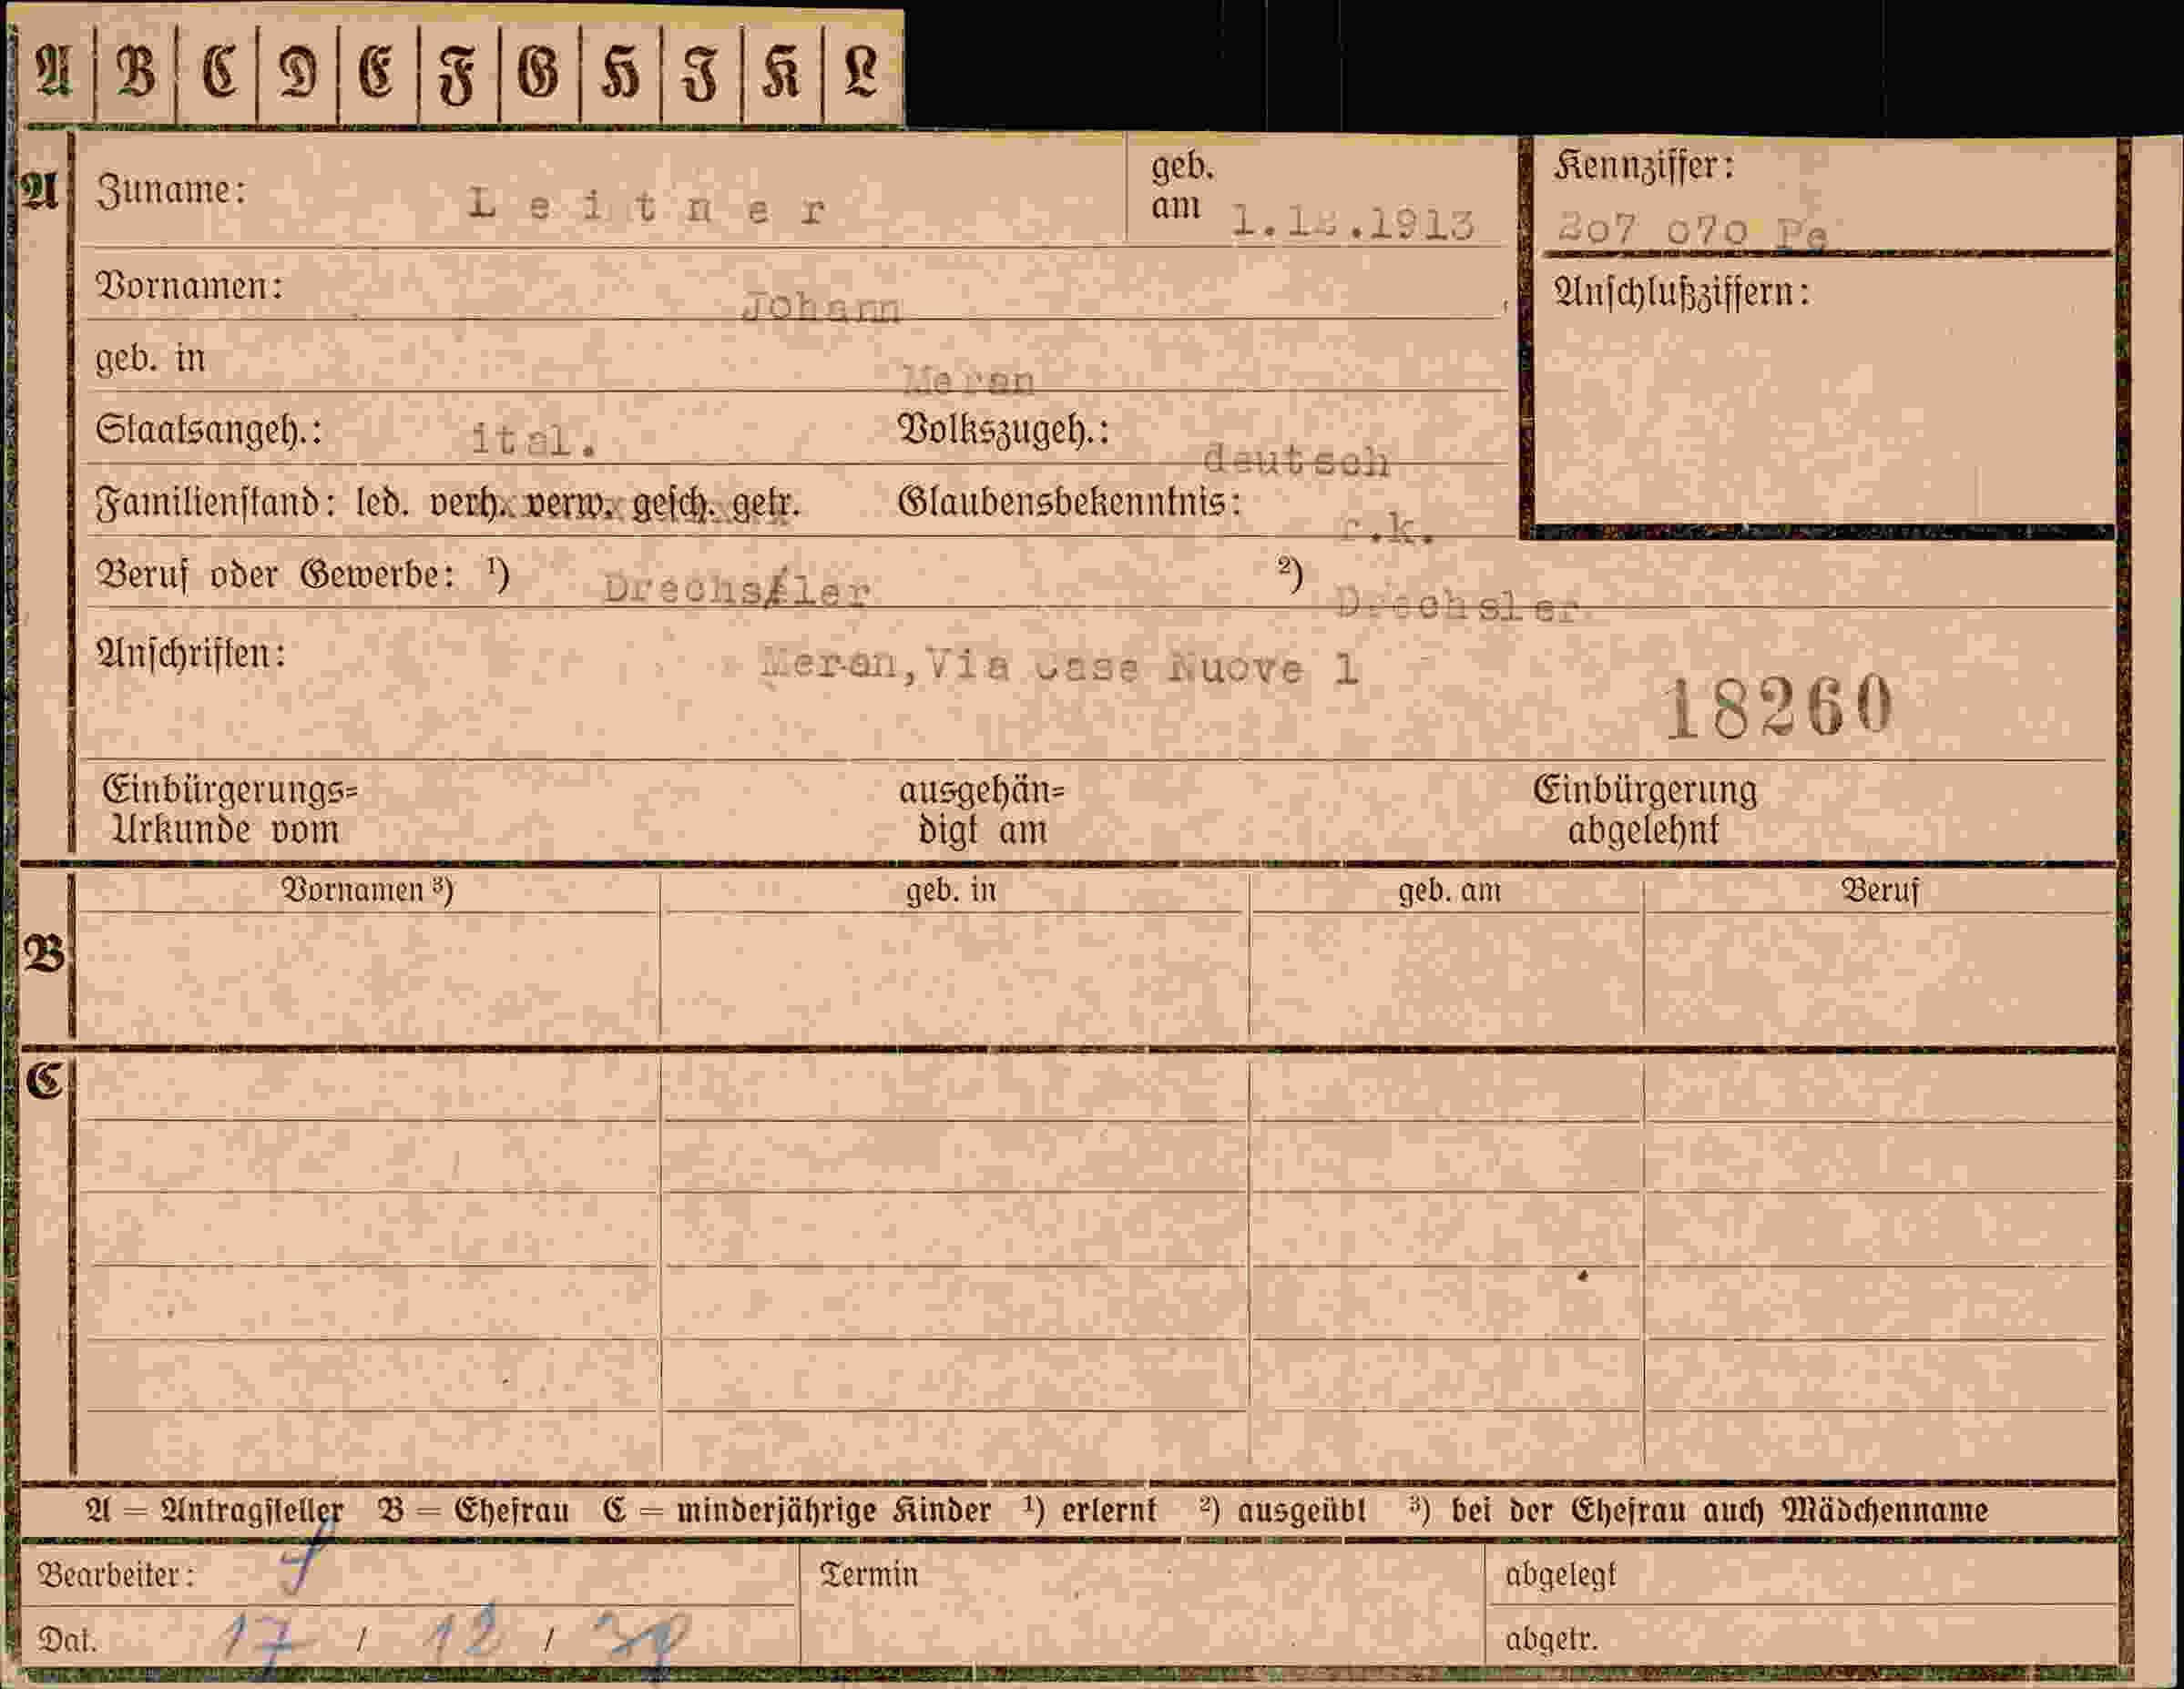 A B C D E F G H J K L
A Zuname: Leitner geb. am 1.12.1913 Kennziffer: 207 070 Pe
Vornamen: Johann Anschlußziffern:
geb. in Meran
Staatsangeh.: ital. Volkszugeh.: deutsch
Familienstand: led. verh. verw. gesch. getr. Glaubensbekenntnis: r.k.
Beruf oder Gewerbe: ¹) Drechsler ²) Drechsler
Anschriften: Meran, Via Case Nuove 1
18260
Einbürgerungs= ausgehän= Einbürgerung
Urkunde vom digt am abgelehnt
Vornamen ³) geb. in geb. am Beruf
B
C
A = Antragsteller B = Ehefrau C = minderjährige Kinder ¹) erlernt ²) ausgeübt ³) bei der Ehefrau auch Mädchenname
Bearbeiter: Termin abgelegt
Dat. 17 / 12 / 39 abgetr.